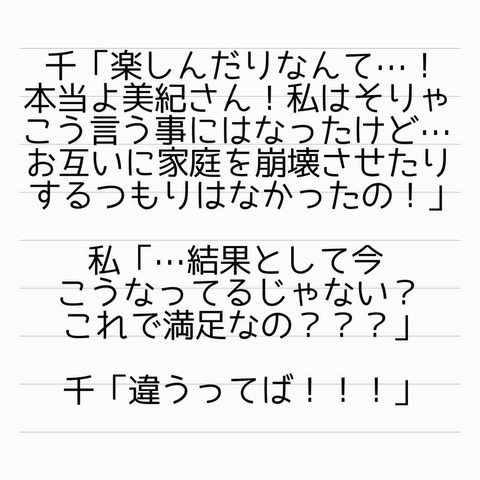 千「楽しんだりなんて…！
本当よ美紀さん！私はそりゃ
こう言う事にはなったけど…
お互いに家庭を崩壊させたり
するつもりはなかったの！」
私「…結果として今
こうなってるじゃない？
これで満足なの？？？」
千「違うってば！！！」